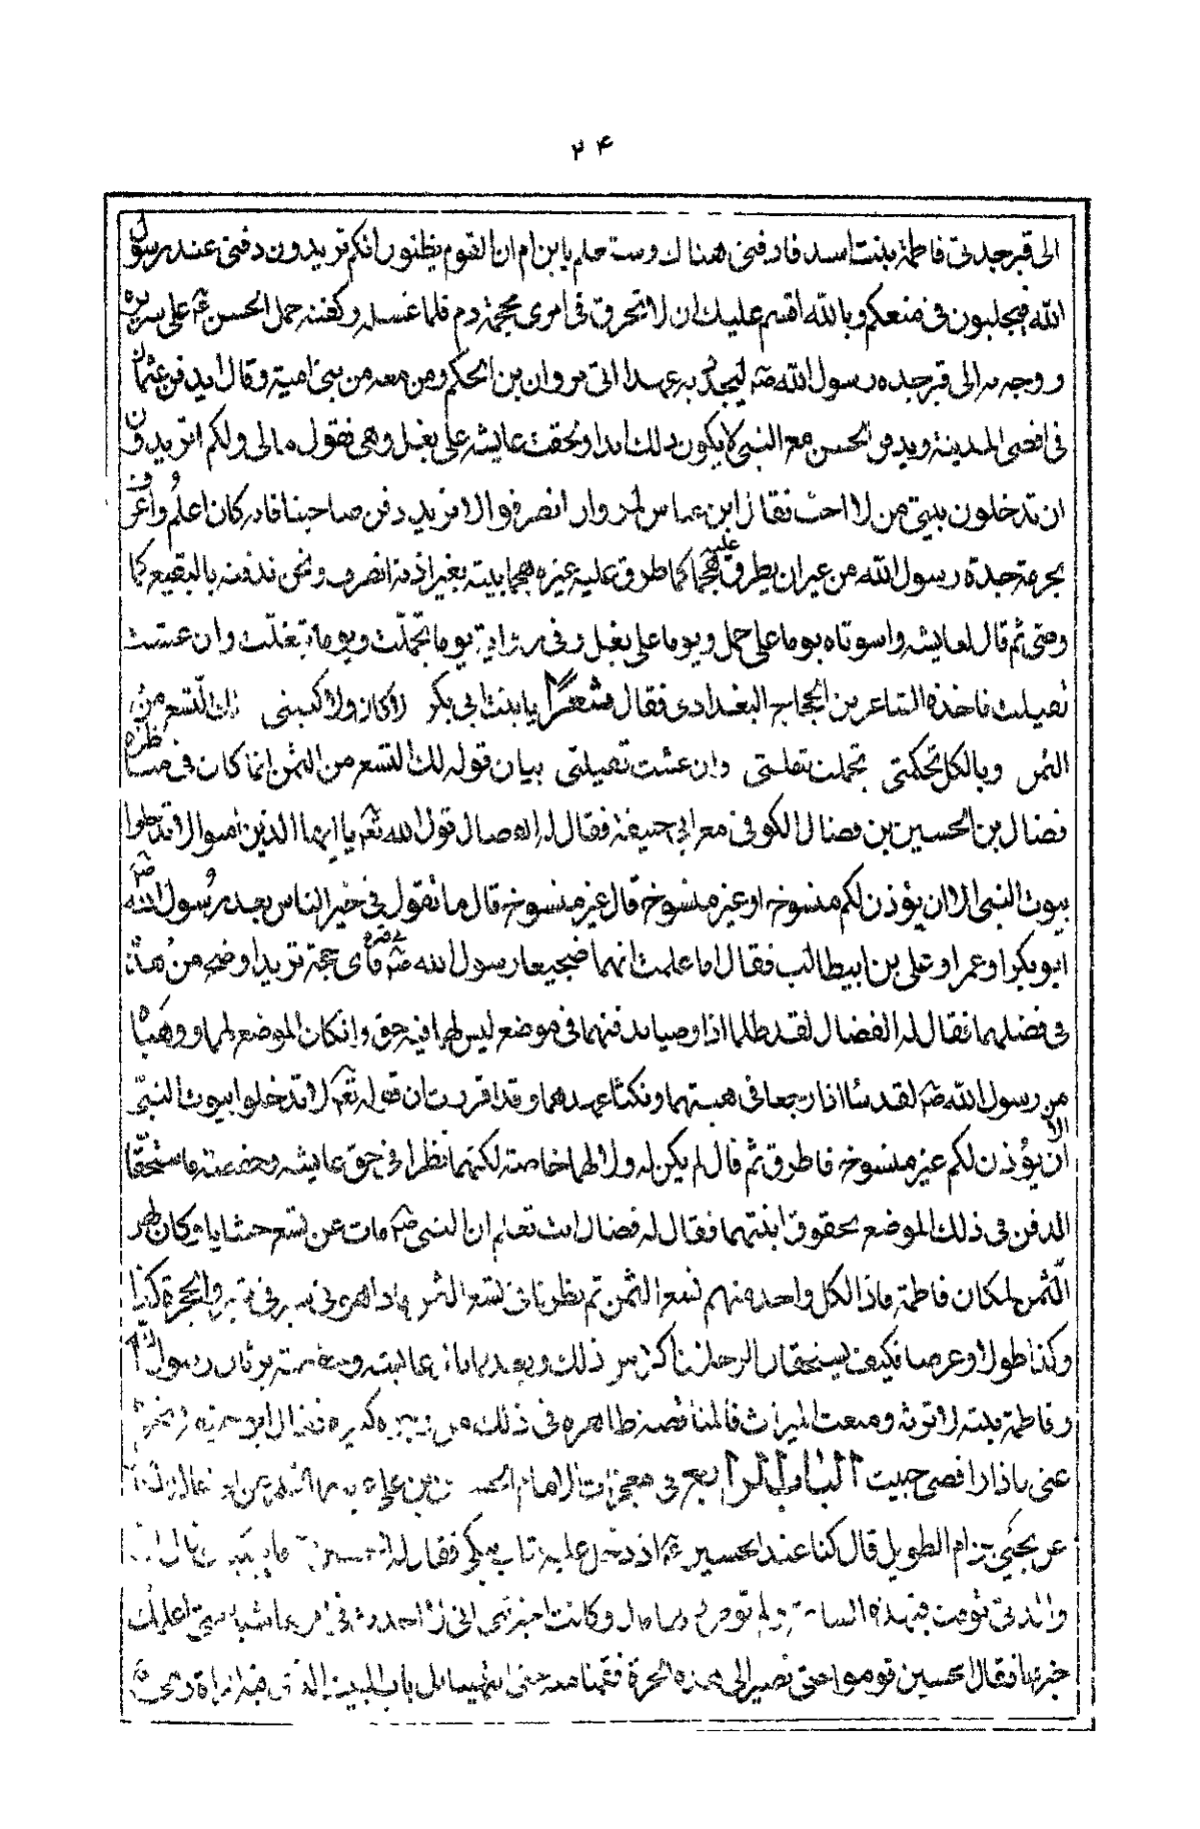 ۲۴
الى قبر جدتى فاطمة بنت اسد فادفنى هناك وستعلم يا بن ام ان القوم يظنون انكم تريدون دفنى عند رسول
الله فيجلبون فى منعكم وبالله اقسم عليك ان لا تحرق فى امرى محجمة دم فلما غسله وكفنه حمل الحسن ع على سريره
وتوجه به الى قبر جده رسول الله ص ليجدد به عهدا اتى مروان بن الحكم ومن معه من بنى امية وقال ايدفن عثمان
فى اقصى المدينة ويدفن الحسن مع النبى لا يكون ذلك ابدا ولحقت عايشه على بغل وهى تقول مالى ولكم اتريدون
ان تدخلون بيتى من لا احب فقال ابن عباس لمروان انصرفوا لا نريد دفن صاحبنا فانه كان اعلم واعرف
بحرمة جده رسول الله من غير ان يطرق عليه هجما كما طرق عليه غيره هجما بيته بغير اذنه انصرف ونحن ندفنه بالبقيع كما
وصى ثم قال لعايشه واسوتاه يوما على جمل ويوما على بغل وفى رواية يوما تجملت ويوما تبغلت وان عشت
تفيلت فاخذه الشاعر بن الحجاج البغدادى فقال شعرًا يا بنت ابى بكر لا كان ولا كنبنى لك التسع من
الثمن وبالكل تحكمتى تجملت تبغلتى وان عشت تفيلتى بيان قوله لك التسع من الثمن انما كان فى مناظره
فضال بن الحسين بن فضال الكوفى مع ابى حنيفة فقال له الفضال قول الله تعم يا ايها الذين امنوا لا تدخلوا
بيوت النبى الا ان يؤذن لكم منسوخه او غير منسوخه قال غير منسوخه قال ما تقول فى خير الناس بعد رسول الله ص
ابو بكر او عمر او على بن ابيطالب فقال اما علمت انهما ضجيعا رسول الله ص فاى حجة تريد اوضح من هذه
فى فضلهما فقال له الفضال لقد ظلما اذ اوصيا بدفنهما فى موضع ليس لهما فيه حق وانكان الموضع لهما ووهباه
من رسول الله ص لقد سئا اذا رجعا فى هبتهما ونكثا عهدهما وقد اقررت ان قوله تعم لا تدخلوا بيوت النبى
الا ان يؤذن لكم غير منسوخه فاطرق ثم قال لم يكن له ولا لهما خاصة لكنهما نظرا فى حق عايشه وحفصة فاستحقا
الدفن فى ذلك الموضع بحقوق ابنتهما فقال له فضال انت تعلم ان النبى ص مات عن تسع حشايا وكان لهن
الثمن لمكان فاطمة فاذا لكل واحده منهم تسع الثمن ثم نظرنا فى تسع الثمن فاذا هو شبر فى شبر والحجرة كذا
وكذا طولا وعرضا فكيف يستحقان الرجلان اكثر من ذلك وبعد عايشه وحفصة يرثان رسول الله
وفاطمة بنته لا ترثه ومنعت الميراث فالمناقضة ظاهره فى ذلك من وجوه كثيره فقال ابو حنيفه
عنى فاذا رافضى خبيث الباب الرابع فى معجزات الامام الحسين بن على
عن يحيى بن ام الطويل قال كنا عند الحسين ع اذ دخل عليه شاب يبكى فقال له الحسين ع ما يبكيك قال ان
والدتى توفت فى هذه الساعة ولم توص ولها مال وكانت اخبرتنى انى لا احدث فى امرها شيئا حتى اعلمك
خبرها فقال الحسين قوموا حتى نصير الى هذه الحرة فقمنا معه حتى انتهينا الى باب البيت الذى فيه المراة وهى